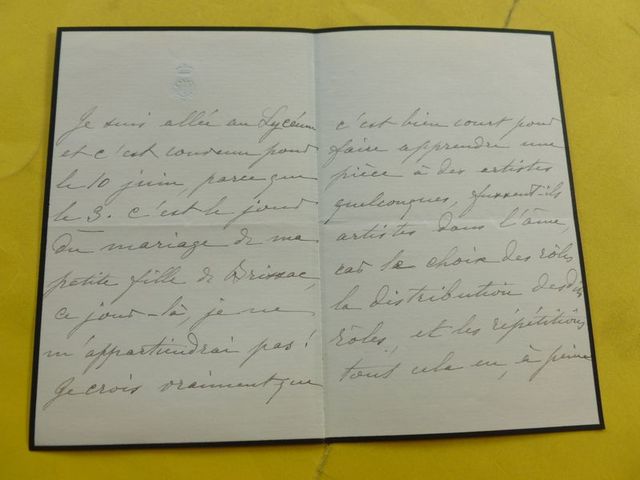 Je suis allée au Lycéum
et c'est convenu pour
le 10 juin, parce que
le 3. c'est le jour
du mariage de ma
petite fille de Brissac,
ce jour-là, je ne
m'appartiendrai pas!
Je crois vraiment que
c'est bien court pour
faire apprendre une
pièce à des artistes
quelconques, fussent-ils
artistes dans l'âme,
car le choix des rôles
la distribution des dits
rôles, et les répétitions
tout cela en, à peine